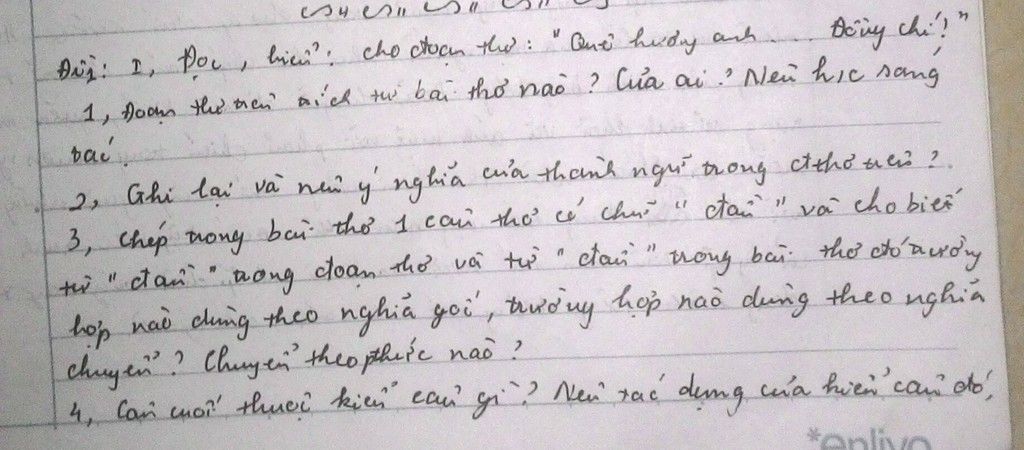 Đề: I, Đọc, hiểu: cho đoạn thơ: "Quê hương anh .... Đồng chí!"
1, Đoạn thơ trên trích từ bài thơ nào? Của ai? Nêu h/c sáng
tác.
2, Ghi lại và nêu ý nghĩa của thành ngữ trong đ.thơ trên?
3, Chép trong bài thơ 1 câu thơ có chữ "đầu" và cho biết
từ "đầu" trong đoạn thơ và từ "đầu" trong bài thơ đó trường
hợp nào dùng theo nghĩa gốc, trường hợp nào dùng theo nghĩa
chuyển? Chuyển theo pthức nào?
4, Câu cuối thuộc kiểu câu gì? Nêu tác dụng của kiểu câu đó.
*enlivo